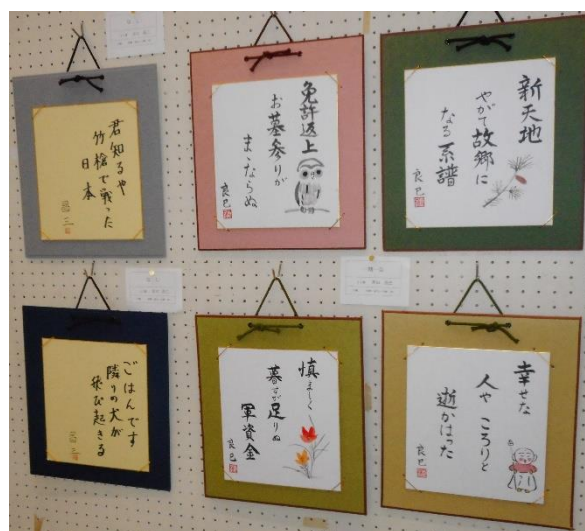 君知るや
竹槍で戦った
日本
免許返上
お墓参りが
まゝならぬ
良己
新天地
やがて故郷に
なる系譜
良己
ごはんです
隣りの犬が
飛び起きる
慎ましく
暮せど足りぬ
軍資金
良己
幸せな
人やころりと
逝かはった
良己